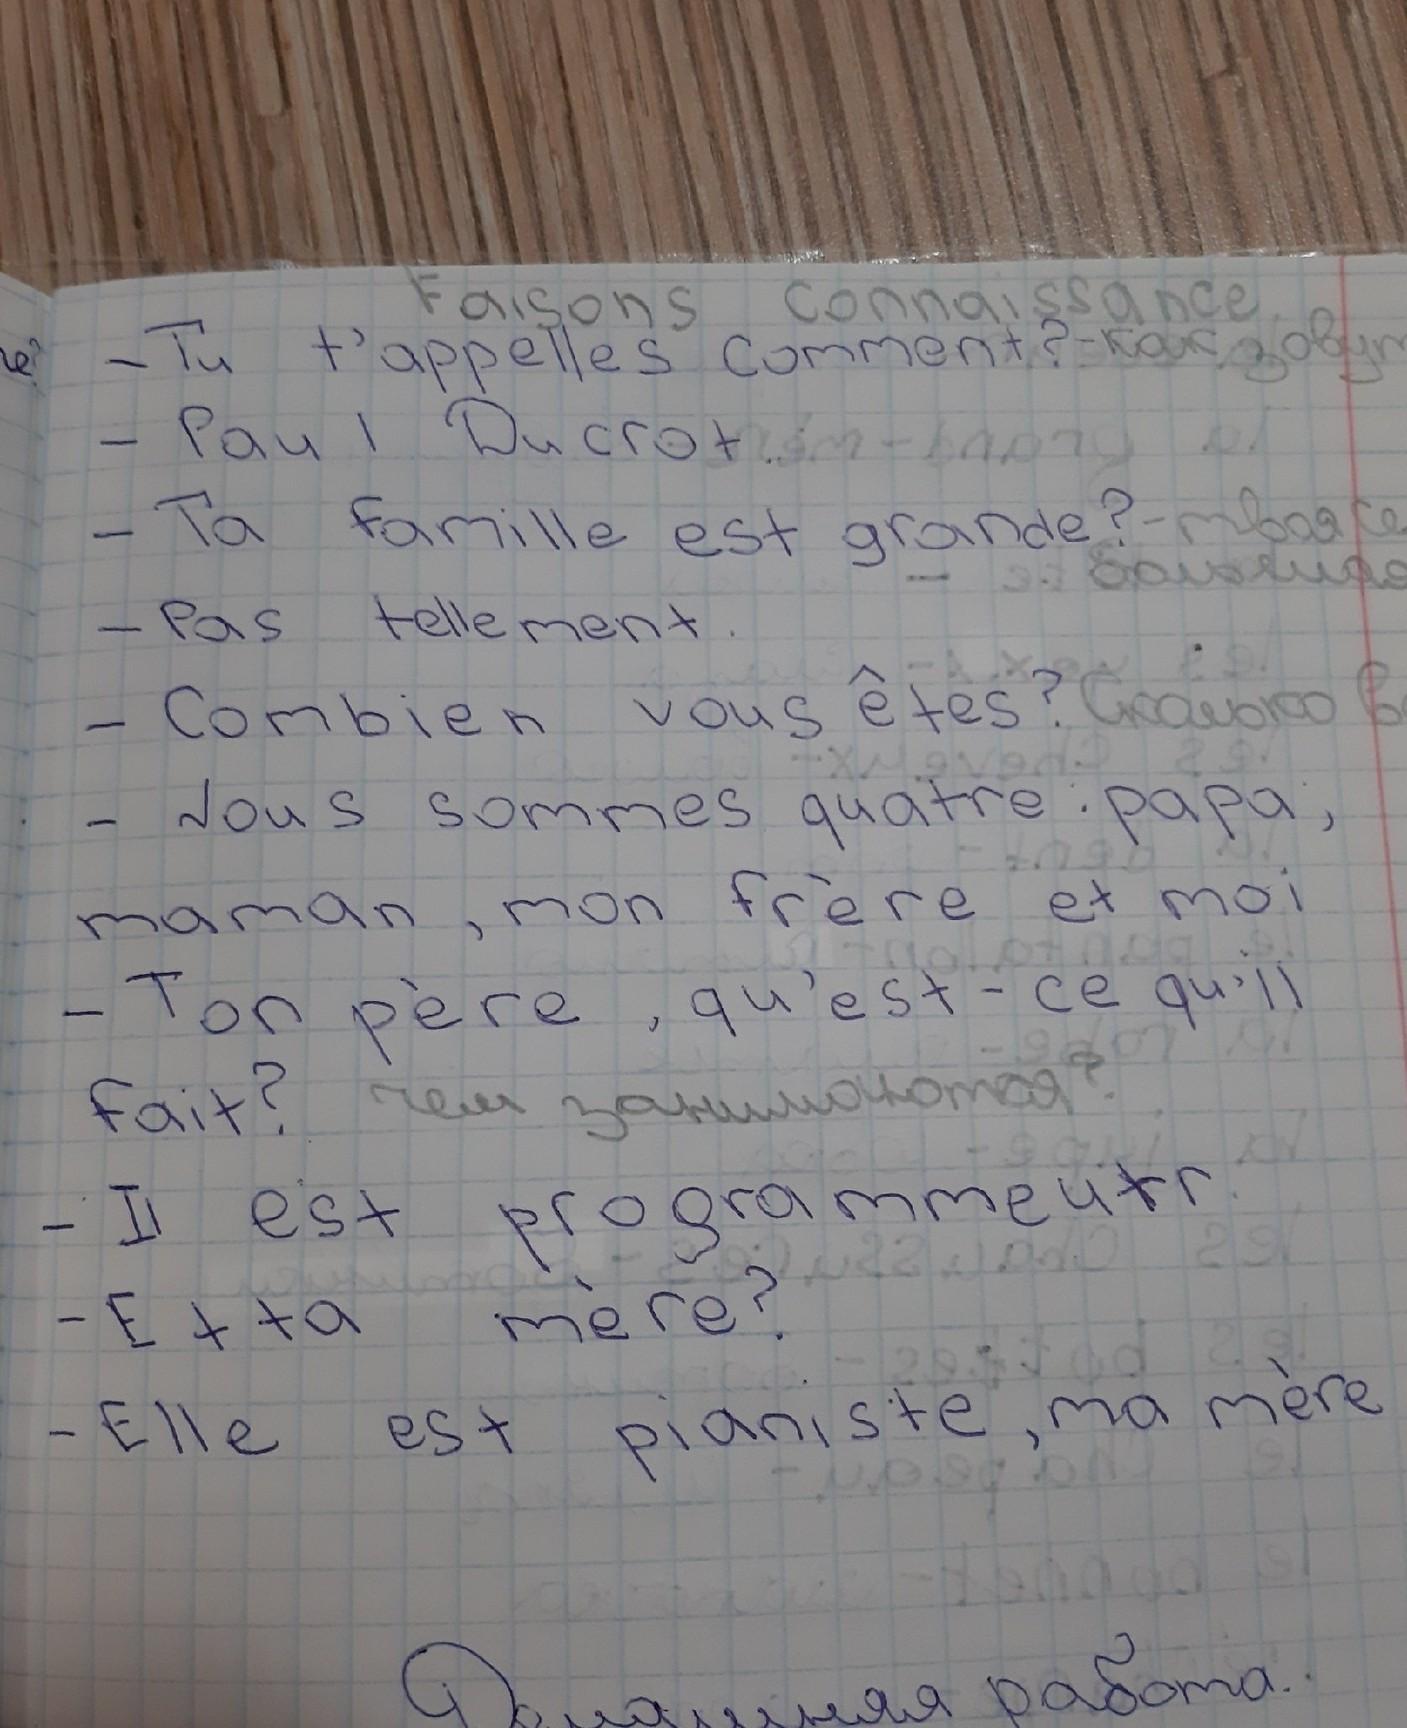 Faisons connaissance.
- Tu t'appelles comment? - как зовут
- Paul Ducrot.
- Ta famille est grande? - твоя се
большая
- Pas tellement.
- Combien vous êtes? Сколько ва
- Nous sommes quatre: papa,
maman, mon frère et moi
- Ton père, qu'est-ce qu'il
fait? чем занимаются?
- Il est programmeur.
- Et ta mère?
- Elle est pianiste, ma mère
Домашняя работа.